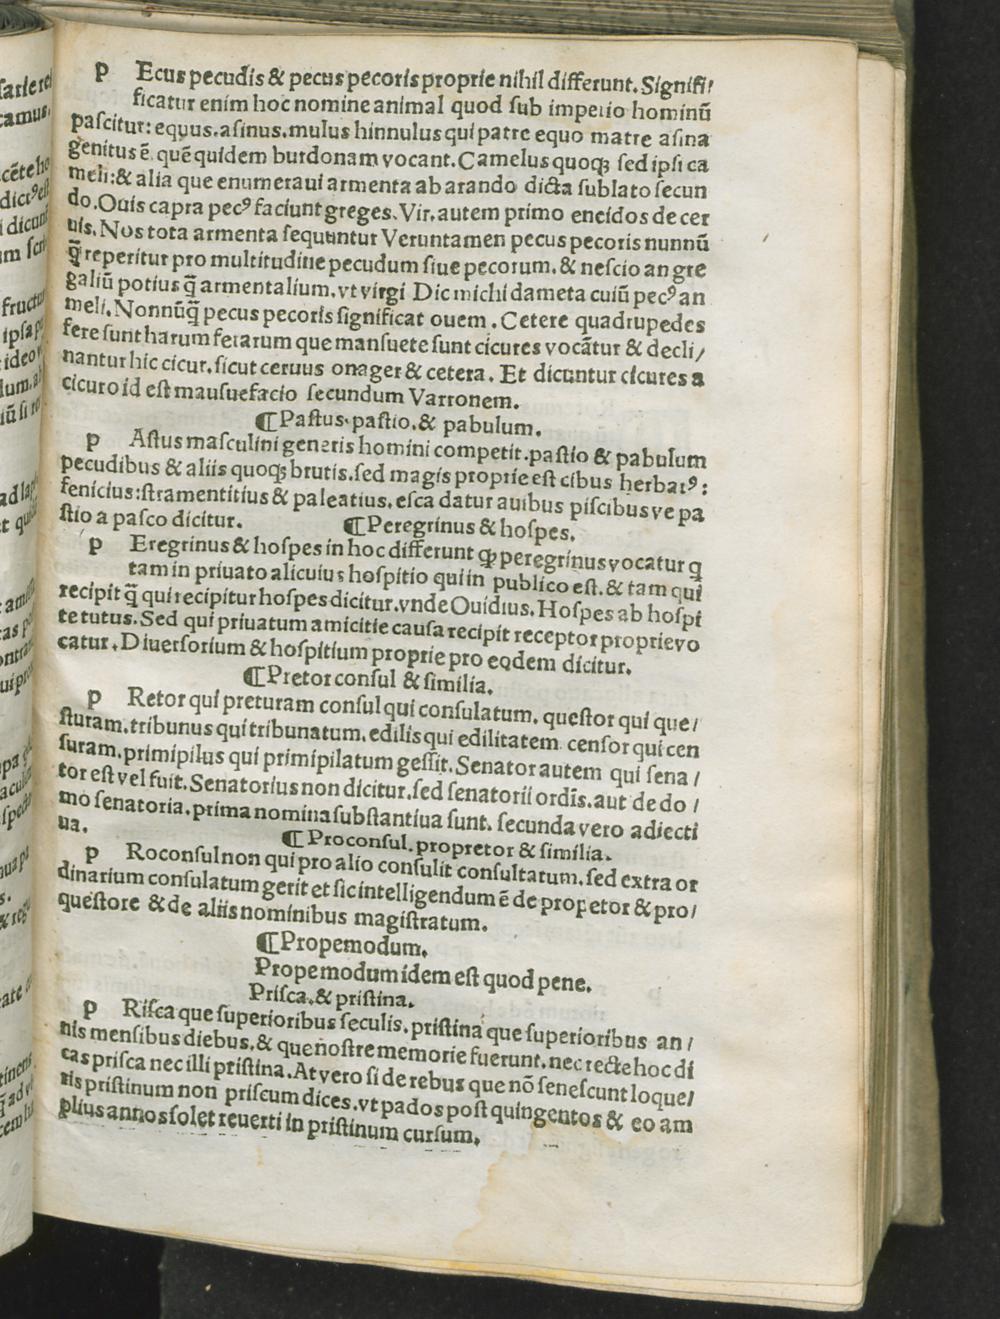 p Ecus pecudis & pecus pecoris proprie nihil differunt. Signifi/
ficatur enim hoc nomine animal quod ſub imperio hominū
paſcitur: equus. aſinus. mulus hinnulus qui patre equo matre aſina
genitus ē. quē quidem burdonam vocant. Camelus quoq; ſed ipſi ca
meli: & alia que enumeraui armenta ab arando dicta ſublato ſecun
do. Ouis capra pecꝰ faciunt greges. Vir. autem primo eneidos de cer
uis. Nos tota armenta ſequuntur Veruntamen pecus pecoris nunnū
q̄ reperitur pro multitudine pecudum ſiue pecorum. & neſcio an gre
galiū potius q̄ armentalium. vt virgi Dic michi dameta cuiū pecꝰ an
meli. Nonnūq̄ pecus pecoris ſignificat ouem. Cetere quadrupedes
fere ſunt harum ferarum que manſuete ſunt cicures vocātur & decli/
nantur hic cicur. ſicut ceruus onager & cetera. Et dicuntur cicures a
cicuro id eſt mauſuefacio ſecundum Varronem.
¶ Paſtus. paſtio. & pabulum.
p Aſtus maſculini generis homini competit. paſtio & pabulum
pecudibus & aliis quoq; brutis. ſed magis proprie eſt cibus herbarꝰ:
fenicius: ſtramentitius & paleatius. eſca datur auibus piſcibus ve pa
ſtio a paſco dicitur. ¶ Peregrinus & hoſpes.
p Eregrinus & hoſpes in hoc differunt ꝙ peregrinus vocatur q
tam in priuato alicuius hoſpitio qui in publico eſt. & tam qui
recipit q̄ qui recipitur hoſpes dicitur. vnde Ouidius. Hoſpes ab hoſpi
te tutus. Sed qui priuatum amicitie cauſa recipit receptor proprie vo
catur. Diuerſorium & hoſpitium proprie pro eodem dicitur.
¶ Pretor conſul & ſimilia.
p Retor qui preturam conſul qui conſulatum. queſtor qui que/
ſturam. tribunus qui tribunatum. edilis qui edilitatem cenſor qui cen
ſuram. primipilus qui primipilatum geſſit. Senator autem qui ſena/
tor eſt vel fuit. Senatorius non dicitur. ſed ſenatorii ordīs. aut de do/
mo ſenatoria. prima nomina ſubſtantiua ſunt. ſecunda vero adiecti
ua. ¶ Proconſul. propretor & ſimilia.
p Roconſul non qui pro alio conſulit conſultatum. ſed extra or
dinarium conſulatum gerit et ſic intelligendum ē de propetor & pro/
queſtore & de aliis nominibus magiſtratum.
¶ Propemodum.
Propemodum idem eſt quod pene.
Priſca. & priſtina.
p Riſca que ſuperioribus ſeculis. priſtina que ſuperioribus an/
nis menſibus diebus. & que noſtre memorie fuerunt. nec recte hoc di
cas priſca nec illi priſtina. At vero ſi de rebus que nō ſeneſcunt loque/
ris priſtinum non priſcum dices. vt pados poſt quingentos & eo am
plius annos ſolet reuerti in priſtinum curſum.